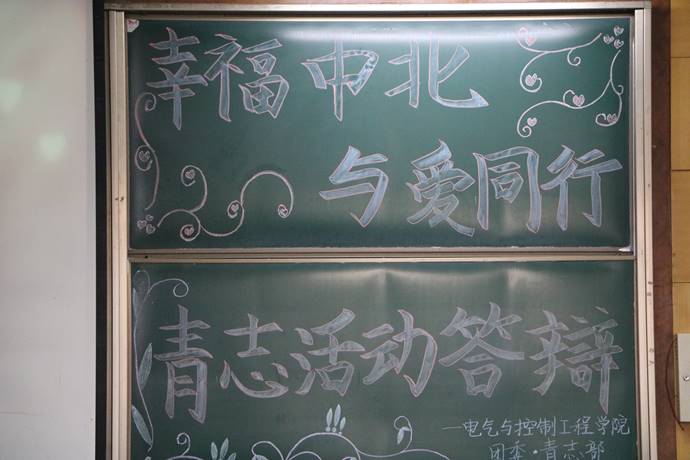 幸福中北
与爱同行
青志活动答辩
—电气与控制工程学院
团委·青志部